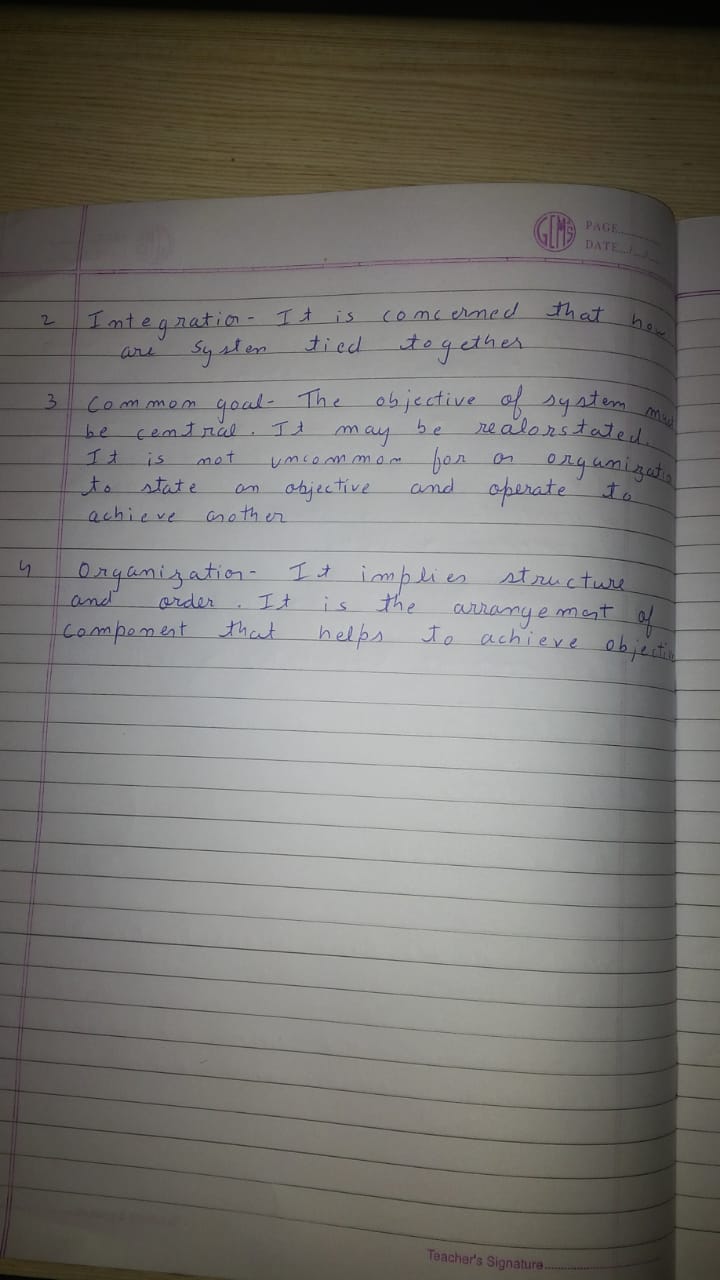 GEMS
PAGE
DATE
2 Integration - It is concerned that how
are system tied together
3 Common goal - The objective of system must
be central. It may be real or stated.
It is not uncommon for an organization
to state an objective and operate to
achieve another
4 Organization - It implies structure
and order. It is the arrangement of
component that helps to achieve objective
Teacher's Signature